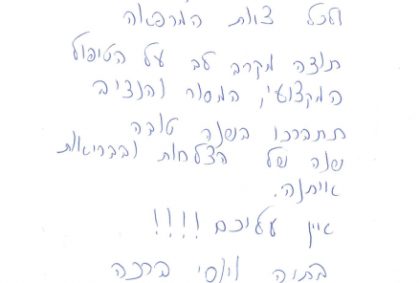 ולכל צוות המרפאה
תודה מקרב לב על הטיפול
המקצועי, המסור והנדיב
תתברכו בשנה טובה
שנה של הצלחות ובבריאות
איתנה.
אין עליכם !!!!
בתיה ויוסי ברכה